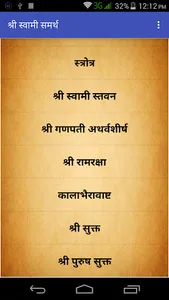 3G 32% 12:12 PM
श्री स्वामी समर्थ
स्त्रोत्र
श्री स्वामी स्तवन
श्री गणपती अथर्वशीर्ष
श्री रामरक्षा
कालाभैरावाष्ट
श्री सुक्त
श्री पुरुष सुक्त